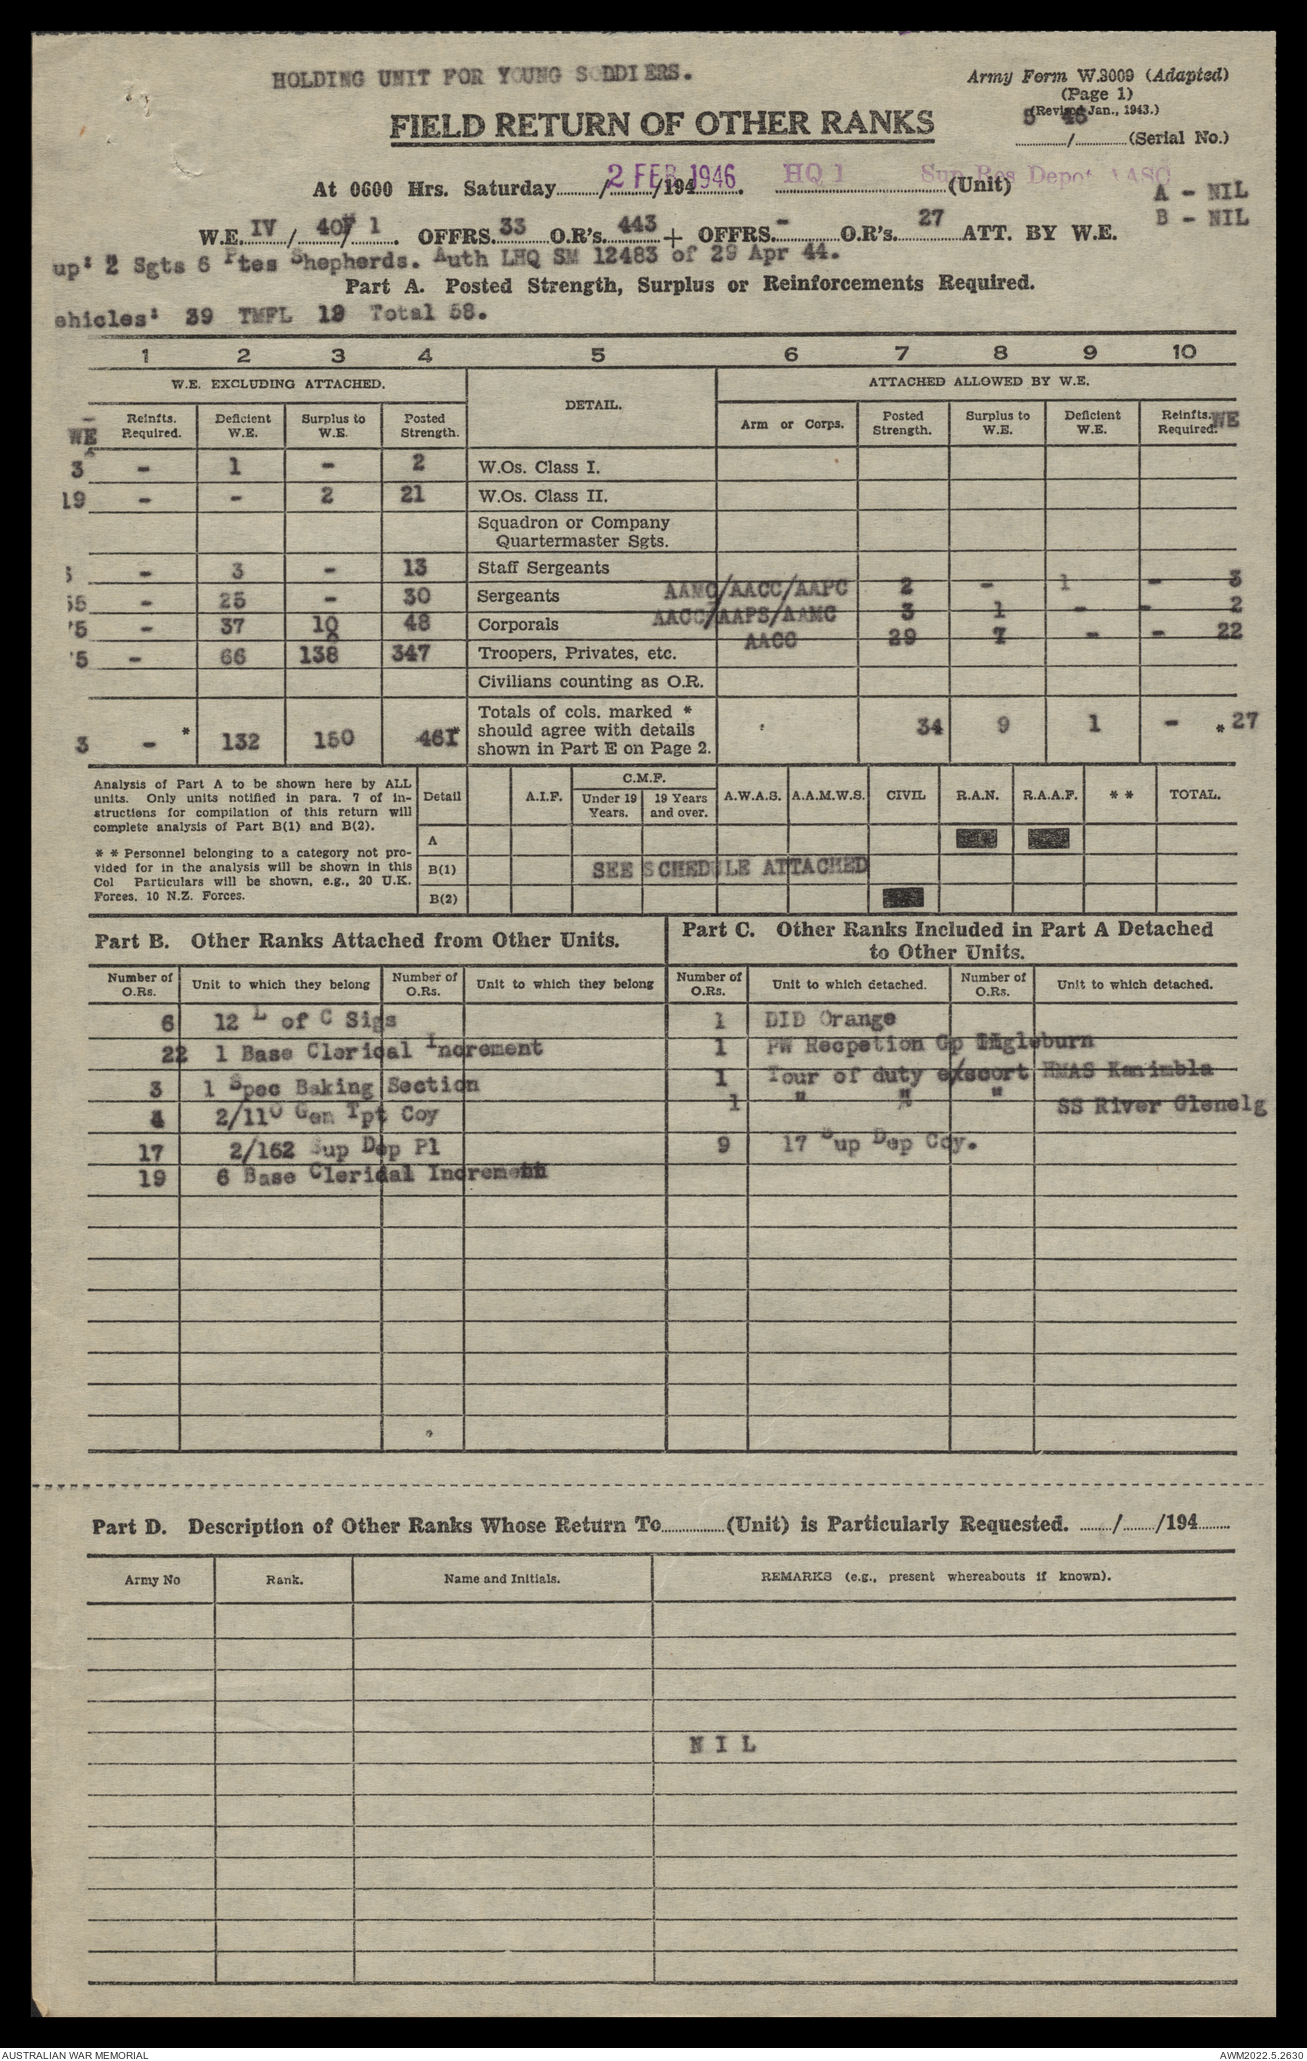 HOLDING UNIT FOR YOUNG SODDIERS.
Army Form W.3009 (Adapted)
(Page 1)
(Revised Jan., 1943.)
FIELD RETURN OF OTHER RANKS
5 / 46 (Serial No.)
At 0600 Hrs. Saturday 2 FEB 1946 /194 . HQ 1 Sup Res Depot AASC (Unit)
A - NIL
B - NIL
W.E. IV / 407 / 1 . OFFRS. 33 O.R's. 443 + OFFRS. - O.R's. 27 ATT. BY W.E.
up: 2 Sgts 6 Ptes Shepherds. Auth LHQ SM 12483 of 29 Apr 44.
Part A. Posted Strength, Surplus or Reinforcements Required.
ehicles: 39 TMFL 19 Total 58.
1 2 3 4 5 6 7 8 9 10
W.E. EXCLUDING ATTACHED. DETAIL. ATTACHED ALLOWED BY W.E.
WE Reinfts. Required. Deficient W.E. Surplus to W.E. Posted Strength. Arm or Corps. Posted Strength. Surplus to W.E. Deficient W.E. Reinfts. Required. WE
3 - 1 - 2 W.Os. Class I.
19 - - 2 21 W.Os. Class II.
Squadron or Company
Quartermaster Sgts.
- 3 - 13 Staff Sergeants
- 25 - 30 Sergeants AAMC/AACC/AAPC 2 - 1 - 3
- 37 10 48 Corporals AACC/AAPS/AAMC 3 1 - - 2
- 66 138 347 Troopers, Privates, etc. AACC 29 7 - - 22
Civilians counting as O.R.
3 - * 132 150 461* Totals of cols. marked * should agree with details shown in Part E on Page 2. 34 9 1 - * 27
Analysis of Part A to be shown here by ALL
units. Only units notified in para. 7 of in-
structions for compilation of this return will
complete analysis of Part B(1) and B(2).
* * Personnel belonging to a category not pro-
vided for in the analysis will be shown in this
Col Particulars will be shown, e.g., 20 U.K.
Forces, 10 N.Z. Forces.
Detail A.I.F. C.M.F. Under 19 Years. 19 Years and over. A.W.A.S. A.A.M.W.S. CIVIL R.A.N. R.A.A.F. * * TOTAL.
A
B(1) SEE SCHEDULE ATTACHED
B(2)
Part B. Other Ranks Attached from Other Units.
Part C. Other Ranks Included in Part A Detached
to Other Units.
Number of O.Rs. Unit to which they belong Number of O.Rs. Unit to which they belong Number of O.Rs. Unit to which detached. Number of O.Rs. Unit to which detached.
6 12 L of C Sigs 1 DID Orange
22 1 Base Clorical Increment 1 PW Recpetion Gp Ingleburn
3 1 Spec Baking Section 1 Tour of duty escort HMAS Kanimbla
4 2/110 Gen Tpt Coy 1 " " " SS River Glenelg
17 2/162 Sup Dep Pl 9 17 Sup Dep Coy.
19 6 Base Cleridal Increment
Part D. Description of Other Ranks Whose Return To (Unit) is Particularly Requested. / /194
Army No Rank. Name and Initials. REMARKS (e.g., present whereabouts if known).
N I L
AUSTRALIAN WAR MEMORIAL AWM2022.5.2630